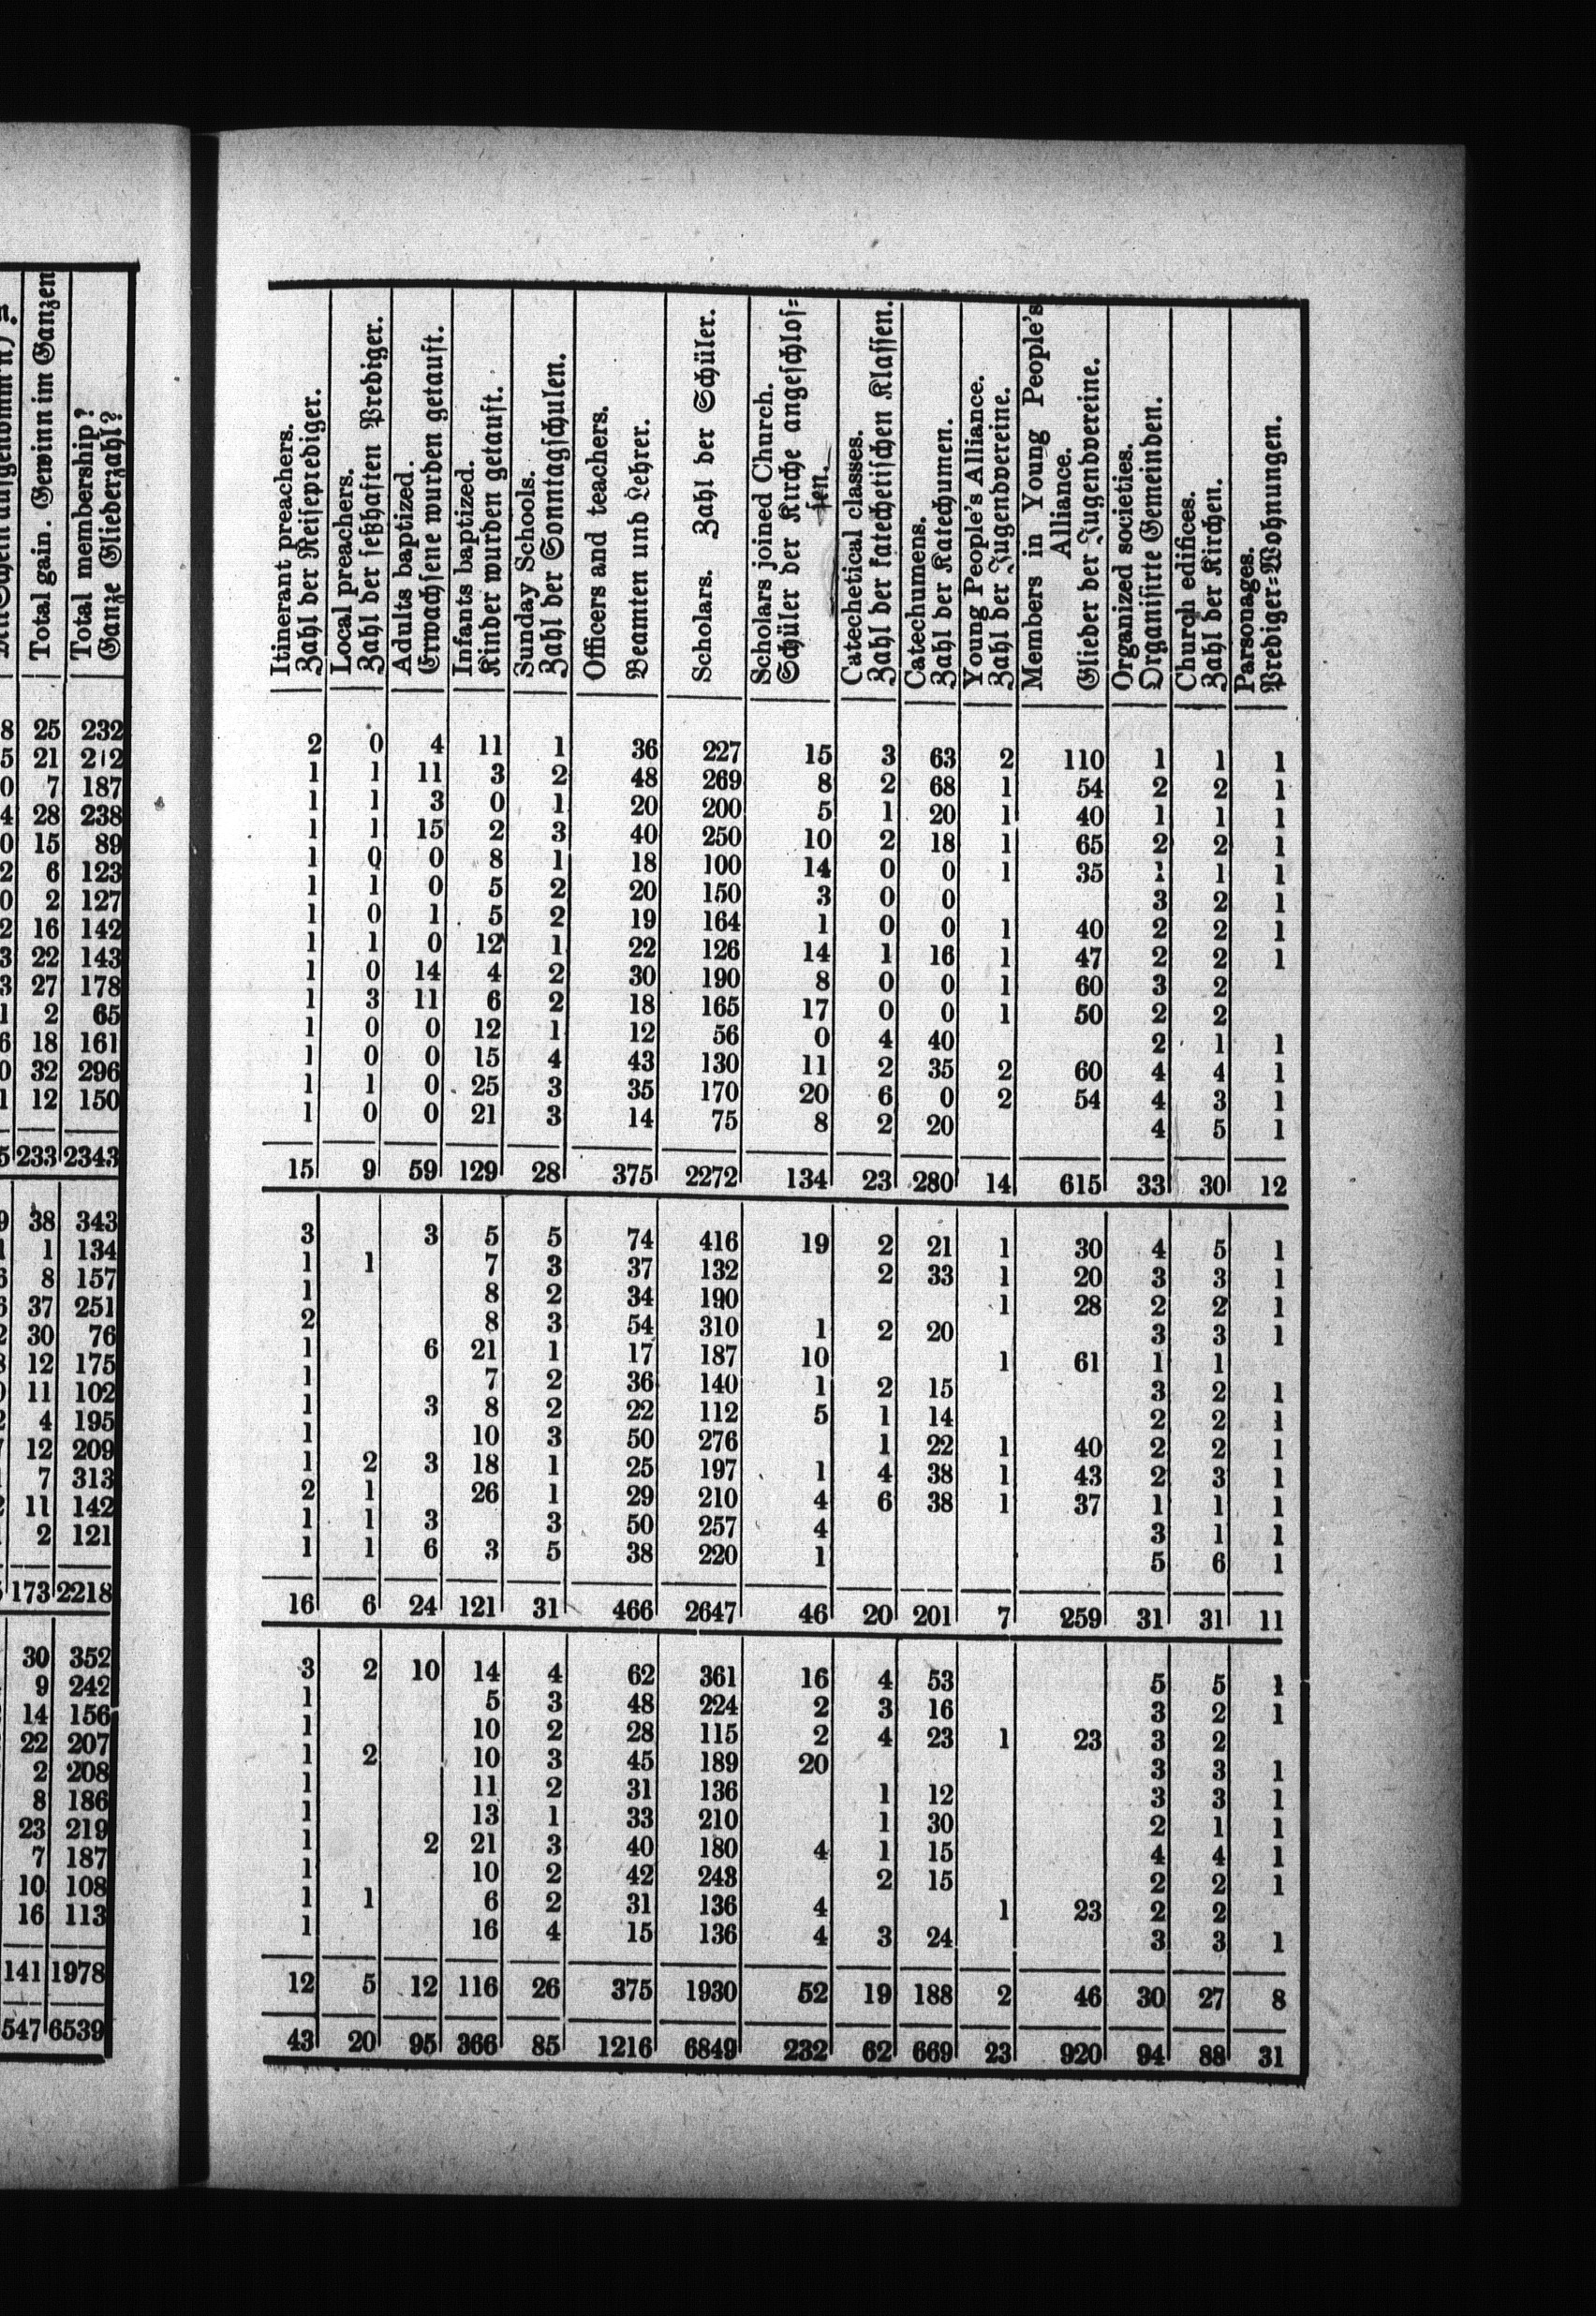 Total gain. Gewinn im Ganzen
Total membership?
Ganze Gliederzahl?
8 25 232
5 21 212
0 7 187
4 28 238
0 15 89
2 6 123
0 2 127
2 16 142
3 22 143
3 27 178
1 2 65
6 18 161
0 32 296
1 12 150
5 233 2343
9 38 343
1 1 134
6 8 157
6 37 251
2 30 76
8 12 175
0 11 102
2 4 195
7 12 209
7 313
2 11 142
2 121
5 173 2218
30 352
9 242
14 156
22 207
2 208
8 186
23 219
7 187
10 108
16 113
141 1978
547 6539
Itinerant preachers.
Zahl der Reiseprediger.
Local preachers.
Zahl der seßhaften Prediger.
Adults baptized.
Erwachsene wurden getauft.
Infants baptized.
Kinder wurden getauft.
Sunday Schools.
Zahl der Sonntagschulen.
Officers and teachers.
Beamten und Lehrer.
Scholars. Zahl der Schüler.
Scholars joined Church.
Schüler der Kirche angeschlos=
sen.
Catechetical classes.
Zahl der katechetischen Klassen.
Catechumens.
Zahl der Katechumen.
Young People's Alliance.
Zahl der Jugendvereine.
Members in Young People's
Alliance.
Glieder der Jugendvereine.
Organized societies.
Organisirte Gemeinden.
Church edifices.
Zahl der Kirchen.
Parsonages.
Prediger=Wohnungen.
2 0 4 11 1 36 227 15 3 63 2 110 1 1 1
1 1 11 3 2 48 269 8 2 68 1 54 2 2 1
1 1 3 0 1 20 200 5 1 20 1 40 1 1 1
1 1 15 2 3 40 250 10 2 18 1 65 2 2 1
1 0 0 8 1 18 100 14 0 0 1 35 1 1 1
1 1 0 5 2 20 150 3 0 0 3 2 1
1 0 1 5 2 19 164 1 0 0 1 40 2 2 1
1 1 0 12 1 22 126 14 1 16 1 47 2 2 1
1 0 14 4 2 30 190 8 0 0 1 60 3 2
1 3 11 6 2 18 165 17 0 0 1 50 2 2
1 0 0 12 1 12 56 0 4 40 2 1 1
1 0 0 15 4 43 130 11 2 35 2 60 4 4 1
1 1 0 25 3 35 170 20 6 0 2 54 4 3 1
1 0 0 21 3 14 75 8 2 20 4 5 1
15 9 59 129 28 375 2272 134 23 280 14 615 33 30 12
3 3 5 5 74 416 19 2 21 1 30 4 5 1
1 1 7 3 37 132 2 33 1 20 3 3 1
1 8 2 34 190 1 28 2 2 1
2 8 3 54 310 1 2 20 3 3 1
1 6 21 1 17 187 10 1 61 1 1
1 7 2 36 140 1 2 15 3 2 1
1 3 8 2 22 112 5 1 14 2 2 1
1 10 3 50 276 1 22 1 40 2 2 1
1 2 3 18 1 25 197 1 4 38 1 43 2 3 1
2 1 26 1 29 210 4 6 38 1 37 1 1 1
1 1 3 3 50 257 4 3 1 1
1 1 6 3 5 38 220 1 5 6 1
16 6 24 121 31 466 2647 46 20 201 7 259 31 31 11
3 2 10 14 4 62 361 16 4 53 5 5 1
1 5 3 48 224 2 3 16 3 2 1
1 10 2 28 115 2 4 23 1 23 3 2
1 2 10 3 45 189 20 3 3 1
1 11 2 31 136 1 12 3 3 1
1 13 1 33 210 1 30 2 1 1
1 2 21 3 40 180 4 1 15 4 4 1
1 10 2 42 243 2 15 2 2 1
1 1 6 2 31 136 4 1 23 2 2
1 16 4 15 136 4 3 24 3 3 1
12 5 12 116 26 375 1930 52 19 188 2 46 30 27 8
43 20 95 366 85 1216 6849 232 62 669 23 920 94 88 31